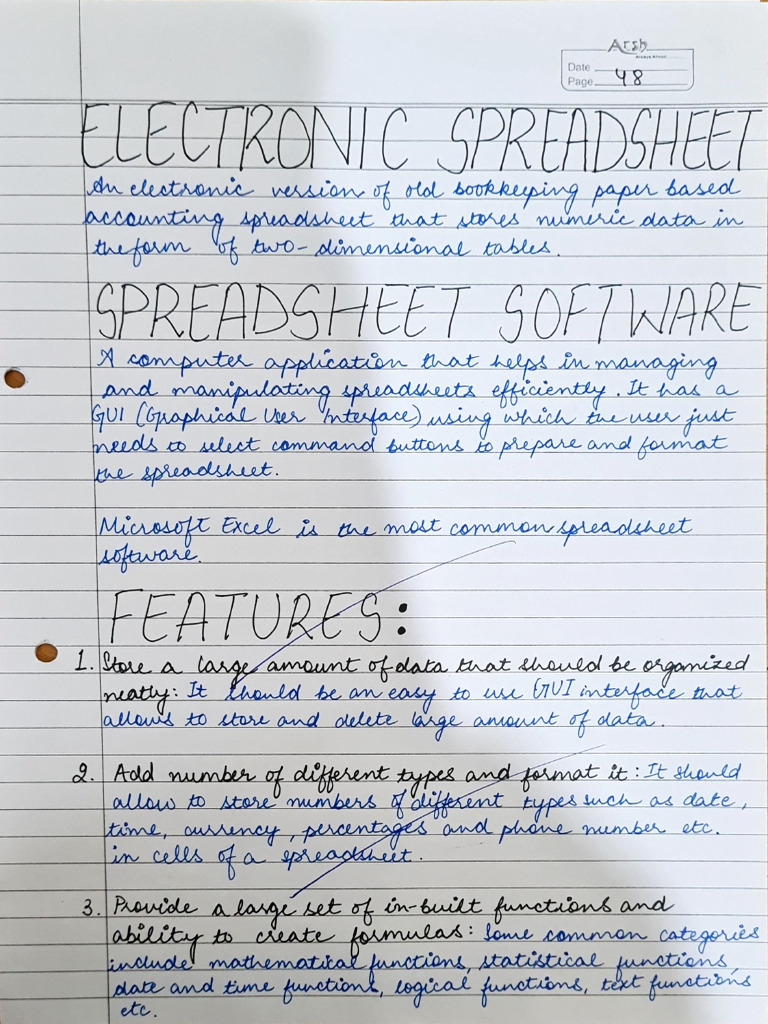 Arsh
Always Ahead
Date
Page 48
ELECTRONIC SPREADSHEET
An electronic version of old bookkeeping paper based
accounting spreadsheet that stores numeric data in
the form of two-dimensional tables.
SPREADSHEET SOFTWARE
A computer application that helps in managing
and manipulating spreadsheets efficiently. It has a
GUI (Graphical User Interface) using which the user just
needs to select command buttons to prepare and format
the spreadsheet.
Microsoft Excel is the most common spreadsheet
software.
FEATURES:
1. Store a large amount of data that should be organized
neatly: It should be an easy to use GUI interface that
allows to store and delete large amount of data.
2. Add number of different types and format it: It should
allow to store numbers of different types such as date,
time, currency, percentages and phone number etc.
in cells of a spreadsheet.
3. Provide a large set of in-built functions and
ability to create formulas: Some common categories
include mathematical functions, statistical functions,
date and time functions, logical functions, text functions
etc.